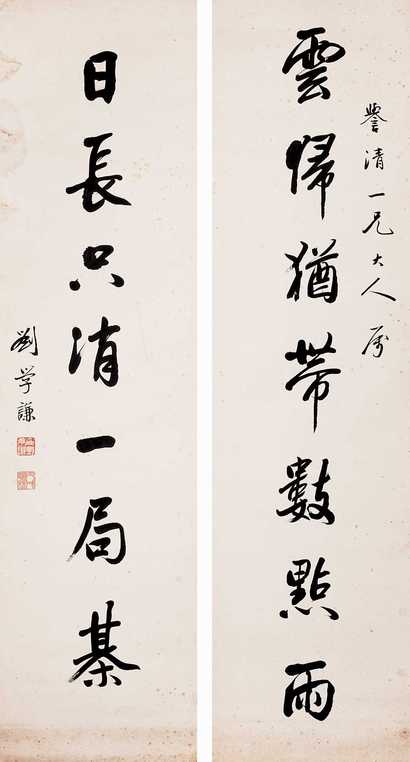 譽清一兄大人屬
雲帰猶帶數點雨
日長只消一局棊
劉学謙